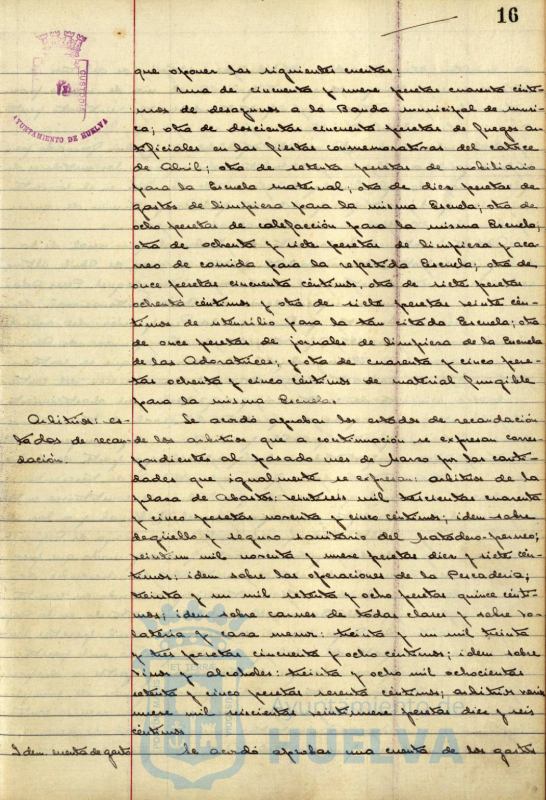 16
CUSTODIA
AYUNTAMIENTO DE HUELVA
que oponer las siguientes cuentas:
Una de cincuenta y nueve pesetas cuarenta cénti-
mos de desayunos a la Banda municipal de músi-
ca; otra de doscientas cincuenta pesetas de fuegos ar-
tificiales en las fiestas conmemorativas del catorce
de Abril; otra de setenta pesetas de mobiliario
para la Escuela maternal; otra de diez pesetas de
gastos de limpieza para la misma Escuela; otra de
ocho pesetas de calefacción para la misma Escuela;
otra de ochenta y siete pesetas de limpieza y aca-
rreo de comida para la repetida Escuela; otra de
once pesetas cincuenta céntimos, otra de siete pesetas
ochenta céntimos y otra de siete pesetas veinte cén-
timos de utensilio para la tan citada Escuela; otra
de once pesetas de jornales de limpieza de la Escuela
de las Adoratrices; y otra de cuarenta y cinco pese-
tas ochenta y cinco céntimos de material fungible
para la misma Escuela.
Arbitrios: es-
tados de recau-
dación.
Se acordó aprobar los estados de recaudación
de los arbitrios que a continuación se expresan corres-
pondientes al pasado mes de Marzo por las canti-
dades que igualmente se expresan: arbitrios de la
plaza de Abastos: veintiseis mil trescientas cuarenta
y cinco pesetas noventa y cinco céntimos; idem sobre
degüello y seguro sanitario del Matadero-perneo;
veintiun mil noventa y nueve pesetas diez y siete cén-
timos; idem sobre las operaciones de la Pescadería;
treinta y un mil setenta y ocho pesetas quince cénti-
mos; idem sobre carnes de todas clases y sobre vo-
latería y caza menor: treinta y un mil treinta
y tres pesetas cincuenta y ocho céntimos; idem sobre
vinos y alcoholes: treinta y ocho mil ochocientas
setenta y cinco pesetas sesenta céntimos; arbitrios varios
nueve mil seiscientas veintinueve pesetas diez y seis
céntimos.
Idem cuenta de gastos
Se acordó aprobar una cuenta de los gastos
Ayuntamiento de
HUELVA